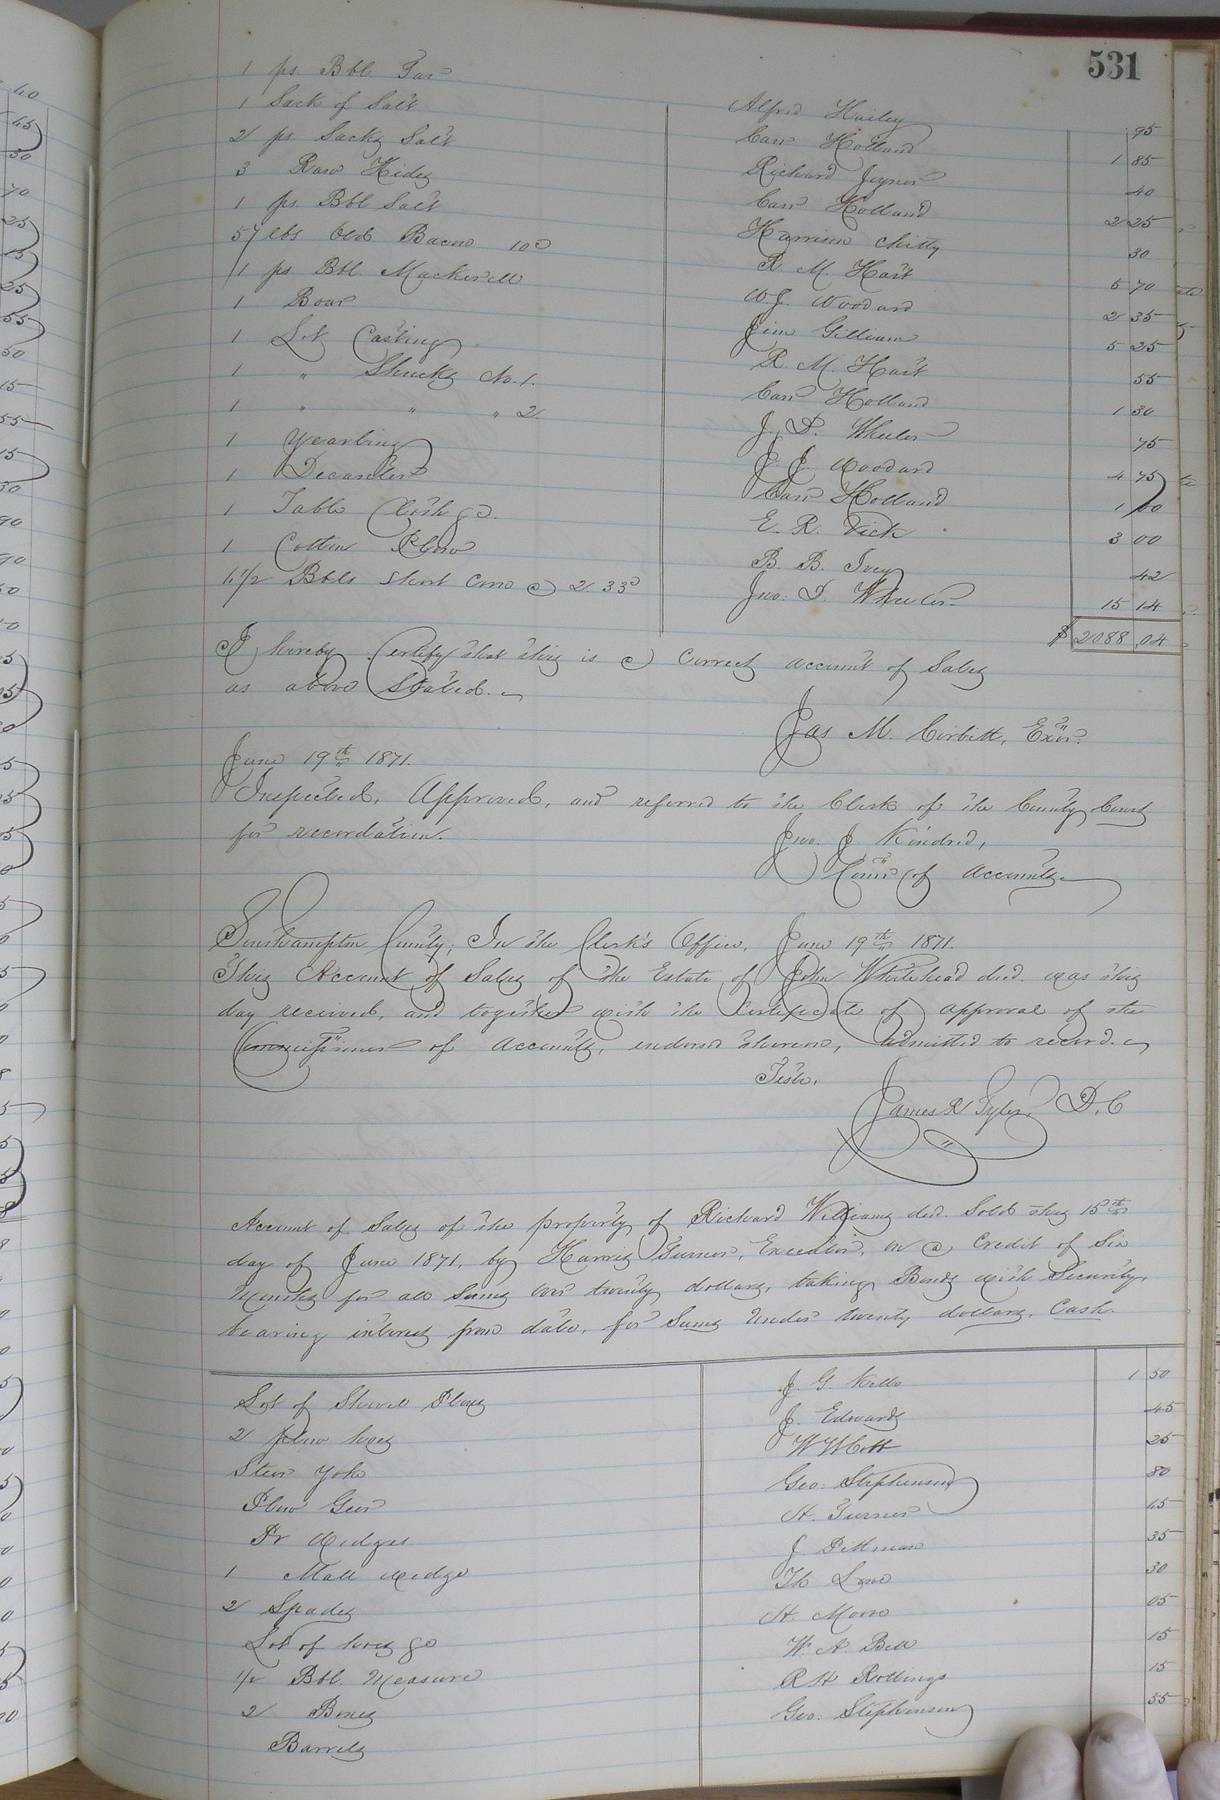 531
1 ps Bbl Tar Alfred Hailey 95
1 Sack of Salt Carr Holland 1 85
2 ps Sacks Salt Richard Joyner 40
3 Raw Hides Carr Holland 2 25
1 ps Bbl Salt Harrison Chitty 30
57 lbs Old Bacon 10c R. M. Hart 5 70
1 ps Bbl Mackerell W. J. Woodard 2 35
1 Boar Jim Gilliam 5 25
1 Lot Casting R. M. Hart 55
1 " Shucks No. 1. Carr Holland 1 30
1 " " " 2 J. D. Wheeler 75
1 Yearling J. J. Woodard 4 75
1 Decanter Carr Holland 1 00
1 Table Cloth &c. E. R. Vick 3 00
1 Cotton Plow B. B. Ivey 42
6 1/2 Bbls Short Corn @ 2.33c Jno. D. Wheeler 15 14
$ 2088 04
I hereby Certify that this is a Correct account of Sales
as above Stated.
Jas M. Corbitt, Exor.
June 19th 1871.
Inspected, Approved, and referred to the Clerk of the County Court
for recordation.
Jno. J. Kindred,
Comr of Accounts
Southampton County; In the Clerk's Office, June 19th 1871.
This Account of Sales of the Estate of John Whitehead decd. was this
day received, and together with the Certificate of approval of the
Commissioner of Accounts, endorsed thereon, admitted to record.
Teste,
James R Tyler, D. C
Account of Sales of the property of Richard Williams decd Sold this 15th
day of June 1871, by Harris Turner, Executor, on a Credit of Six
Months for all Sums over twenty dollars, taking Bonds with Security,
bearing interest from date, for Sums under twenty dollars, Cash.
Lot of Shovel Plows J. G. Kello 1 50
2 Plow hoes J. Edwards 45
Steer Yoke W W Cobb 25
Plow Gear Geo. Stephenson 80
Pr Wedges H. Turner 65
1 Mall wedge J Pittman 35
2 Spades Th Low 30
Lot of hoes &c H. Moore 05
1/2 Bbl. Measure W. N. Bell 15
2 Boxes R H Rollings 15
Barrels Geo. Stephenson 55